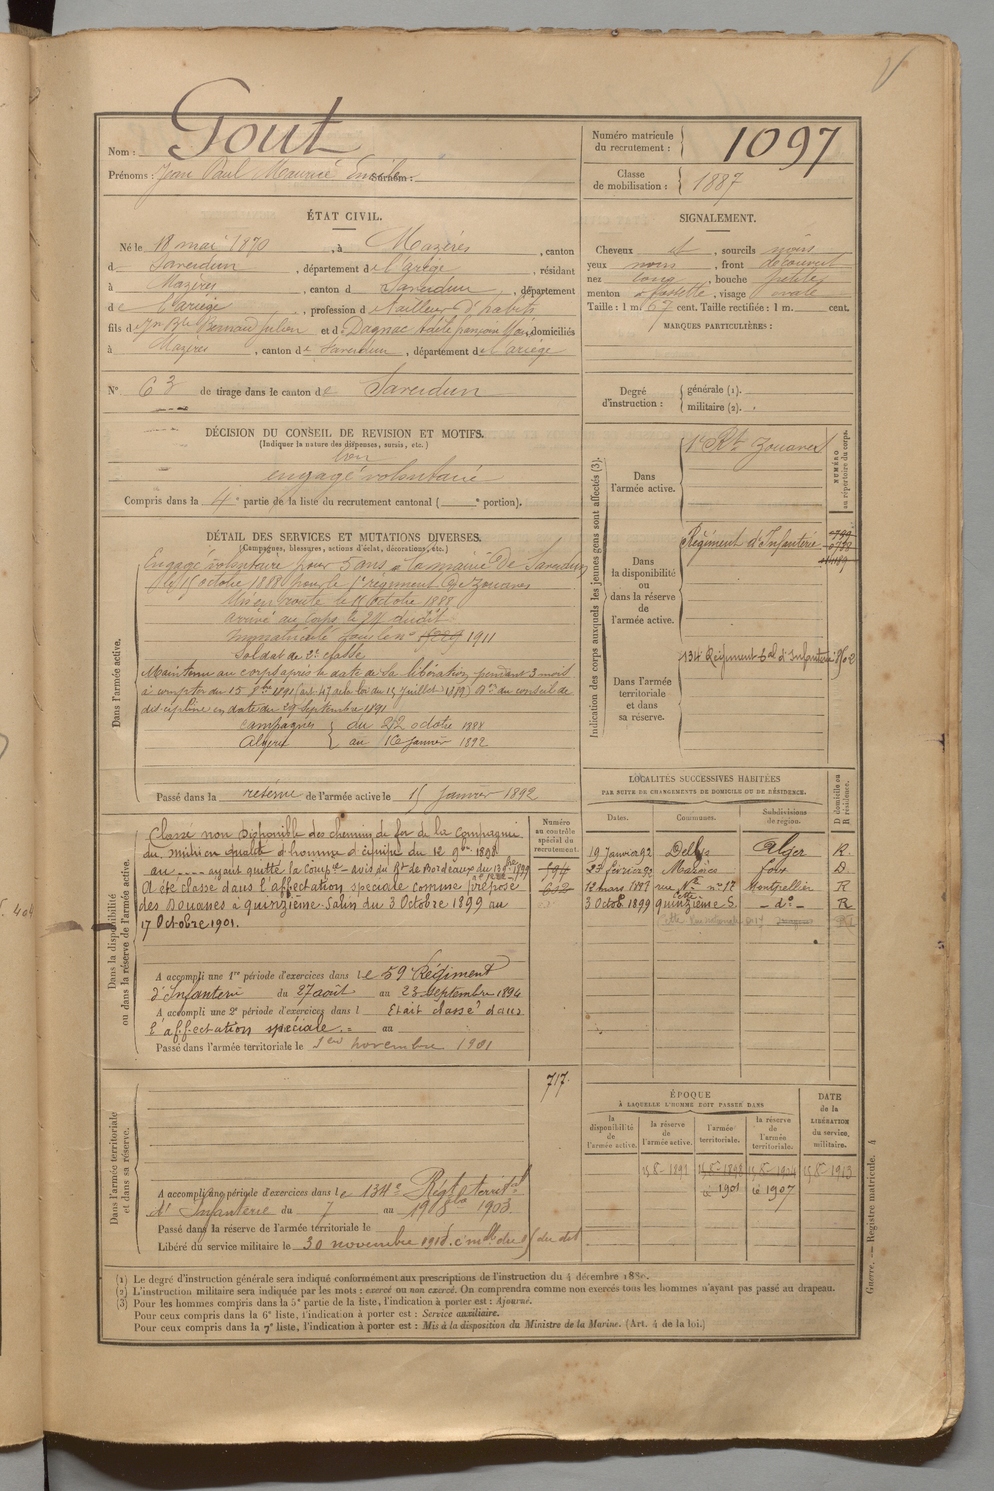 Nom : Gout
Prénoms : Jean Paul Maurice Emile Surnom :
Numéro matricule du recrutement : 1097
Classe de mobilisation : 1887
ÉTAT CIVIL.
Né le 18 mai 1870, à Mazères, canton
de Saverdun, département de l'ariège, résidant
à Mazères, canton de Saverdun, département
de l'ariège, profession de tailleur d'habits
fils de Jn Bte Bernard Julien et de Dagnac, domiciliés
à Mazères, canton de Saverdun, département de l'ariège
N° 63 de tirage dans le canton de Saverdun
SIGNALEMENT.
Cheveux et, sourcils noirs
yeux noirs, front découvert
nez long, bouche petite
menton à fossette, visage ovale
Taille : 1 m. 67 cent. Taille rectifiée : 1 m. cent.
MARQUES PARTICULIÈRES :
Degré d'instruction : générale (1).
militaire (2).
DÉCISION DU CONSEIL DE REVISION ET MOTIFS.
(Indiquer la nature des dispenses, sursis, etc.)
bon
engagé volontaire
Compris dans la 4e partie de la liste du recrutement cantonal ( portion).
DÉTAIL DES SERVICES ET MUTATIONS DIVERSES.
(Campagnes, blessures, actions d'éclat, décorations, etc.)
Dans l'armée active.
Engagé volontaire pour 5 ans à la mairie de Saverdun
le 15 octobre 1888 pour le 1er régiment de zouaves
Mis en route le 15 octobre 1888
arrivé au corps le 24 dudit
immatriculé sous le n° 1911
Soldat de 2e classe
Maintenu au corps après la date de sa libération, pendant 3 mois
à compter du 15 8bre 1891 (art. 47 de la loi du 15 juillet 1889) du conseil de
discipline en date du 29 septembre 1891
Campagnes du 22 octobre 1888
Algérie au 16 janvier 1892
Passé dans la réserve de l'armée active le 15 janvier 1892
Indication des corps auxquels les jeunes gens sont affectés (3).
NUMÉRO au répertoire du corps.
Dans l'armée active.
1er Rt zouaves
Dans la disponibilité ou dans la réserve de l'armée active.
Régiment d'Infanterie
Dans l'armée territoriale et dans sa réserve.
134 Régiment tal d'Infanterie
LOCALITÉS SUCCESSIVES HABITÉES
PAR SUITE DE CHANGEMENTS DE DOMICILE OU DE RÉSIDENCE.
Dates. Communes. Subdivisions de région. D domicile ou R résidence.
19 Janvier 92 Dellys Alger R.
23 février 93 Mazères foix D
12 mars 1897 rue Nle n° 17 Cette Montpellier R
3 Octob. 1899 quinzième S. - d° - R
Dans la disponibilité ou dans la réserve de l'armée active.
Numéro au contrôle spécial du recrutement.
Classé non disponible des chemins de fer de la Compagnie
du midi en qualité d'homme d'équipe du 12 9bre 1898
au .... ayant quitté la Compie - avis du Rt de Bordeaux du
A été classé dans l'affectation spéciale comme préposé
des Douanes à quinzième-Salin du 3 Octobre 1899 au
17 Octobre 1901.
A accompli une 1re période d'exercices dans le 59 Régiment
d'Infanterie du 27 août au 23 septembre 1894
A accompli une 2e période d'exercices dans l Etait classé dans
l'affectation spéciale. au
Passé dans l'armée territoriale le 1er novembre 1901
ÉPOQUE
À LAQUELLE L'HOMME DOIT PASSER DANS
la disponibilité de l'armée active. la réserve de l'armée active. l'armée territoriale. la réserve de l'armée territoriale. DATE de la LIBÉRATION du service militaire.
1901 1907
Dans l'armée territoriale et dans sa réserve.
717.
A accompli une période d'exercices dans le 134e Régt territal
d'Infanterie du 7 au 19 1903
Passé dans la réserve de l'armée territoriale le
Libéré du service militaire le 30 novembre
(1) Le degré d'instruction générale sera indiqué conformément aux prescriptions de l'instruction du 4 décembre 1889.
(2) L'instruction militaire sera indiquée par les mots : exercé ou non exercé. On comprendra comme non exercés tous les hommes n'ayant pas passé au drapeau.
(3) Pour les hommes compris dans la 5e partie de la liste, l'indication à porter est : Ajourné.
Pour ceux compris dans la 6e liste, l'indication à porter est : Service auxiliaire.
Pour ceux compris dans la 7e liste, l'indication à porter est : Mis à la disposition du Ministre de la Marine. (Art. 4 de la loi.)
Guerre. — Registre matricule. 4